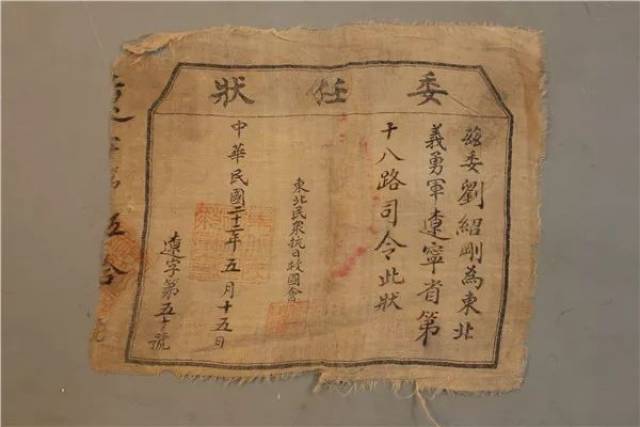 委任狀
茲委劉紹剛為東北
義勇軍遼寧省第
十八路司令此狀
東北民衆抗日救國會
中華民國二十二年五月十五日
遼字第五十號
遼字第伍拾號